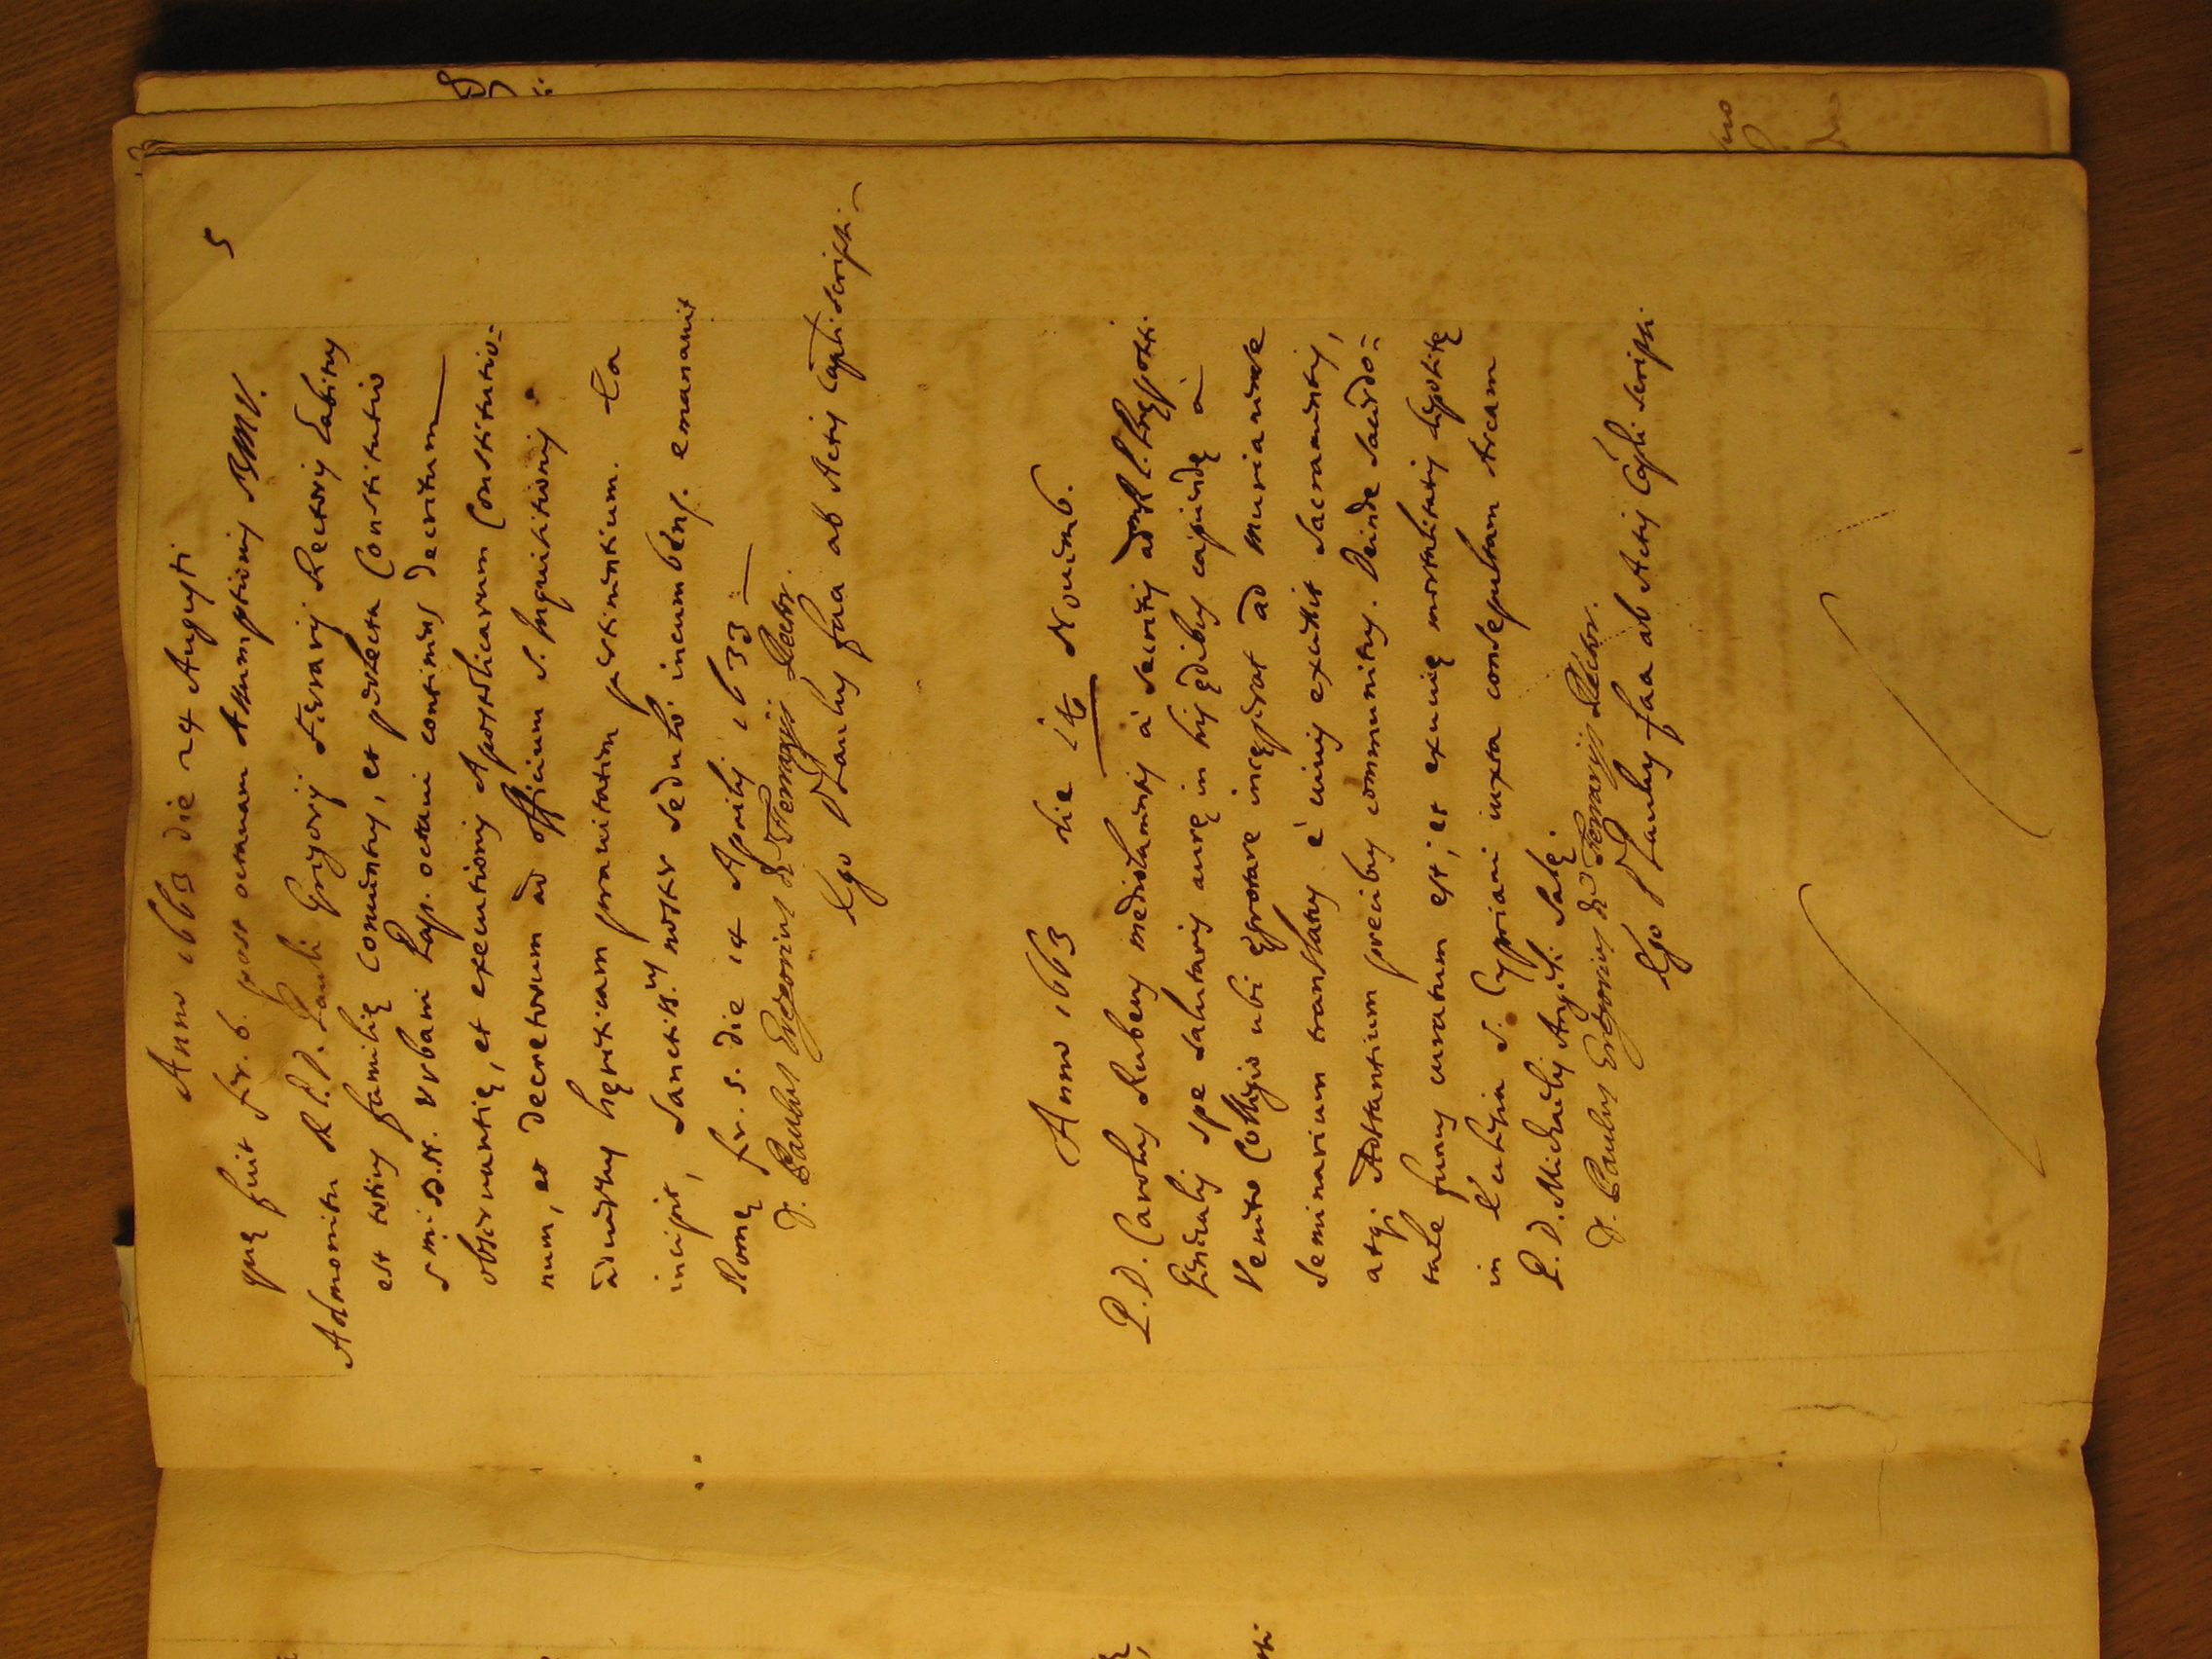 5
Anno 1663 die 24 Augusti
quę fuit fer. 6. post octauam Assumptionis BMV.
Admonitu R.P.D. Pauli Gregorij Ferrarij Rectoris habitus
est totius familię Conuentus, et perlecta Constitutio
S mi D.N. Vrbani Pap. octaui continens decretum
obseruantię, et executionis Apostolicarum Constitutio=
num, et decretorum ad officium S. Inquisitionis
aduersus hęreticam prauitatem pertinentium. Ea
incipit, Sanctiss.us noster sedulò incumbens. emanauit
Romę fer. 5. die 14 Aprilis 1633
D. Paulus Gregorius de Ferrarijs Rector.
Ego D Paulus faa ab Actis Capli scripsi
Anno 1663 die 16 Nouemb.
P.D. Carolus Rubeus mediolanensis à secretis adm R.P. Pręposti.
Generalis spe salutaris aurę in his ędibus capiendę à
Veneto Collegio ubi ęgrotare inceperat ad Murianense
Seminarium translatus è uiuis excessit Sacramentis,
atq; Adstantium precibus communitus. Deinde Sacerdo=
tale funus curatum est, et exuuię mortalitatis depositę
in Ecclesia S. Cypriani iuxta conseptam Arcam
P. D. Michaelis Angeli Salę.
D. Paulus Gregorius de Ferrarijs Rector.
Ego D Paulus faa ab Actis Capli scripsi